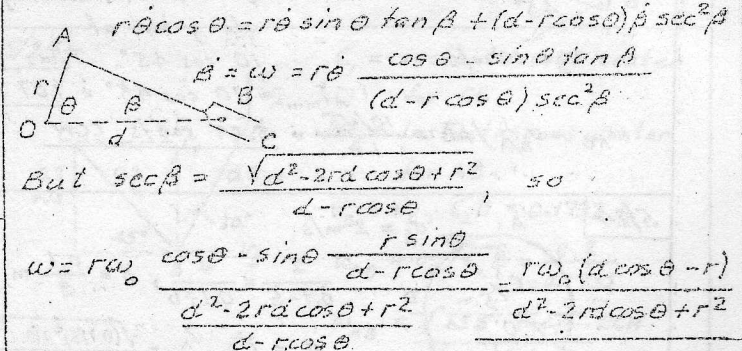 rθ̇ cos θ = rθ̇ sin θ tan β + (d-r cos θ) β̇ sec²β
A
β̇ = ω = rθ̇ (cos θ - sin θ tan β) / ((d-r cos θ) sec²β)
r
θ
β
B
O
d
C
But sec β = √(d²-2rd cos θ + r²) / (d-r cos θ), so
ω = rω₀ (cos θ - sin θ (r sin θ)/(d-r cos θ)) / ((d²-2rd cos θ + r²)/(d-r cos θ)) = rω₀(d cos θ - r) / (d²-2rd cos θ + r²)